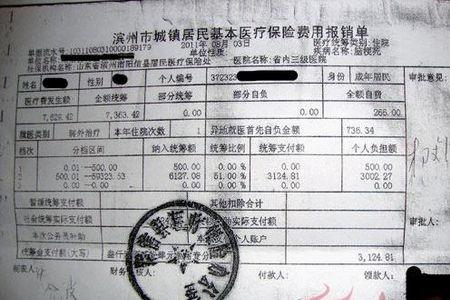 滨州市城镇居民基本医疗保险费用报销单
单据流水号:10311080310000189179 2011年08月03日 医疗统筹类别:住院
单位名称: 单病种名称:脑梗死
社保机构名称:山东省滨州市阳信县居民医疗保险处 医院名称:省内三级医院
姓名 性别 个人编号 372323 身份 成年居民 审批意见:
医疗费发生额 全额统筹 部分统筹 部分自负 全额自费
7,629.42 7,363.42 0.00 0.00 266.00
就医类别 转外治疗 本年住院次数 1 异地就医首先自负金额 736.34
档次 分档区间 纳入统筹额 统筹比例 统筹支付额 个人负担额
1 0.01--500.00 500.00 0.00% 0.00 500.00
2 500.01--59323.53 6127.08 51.00% 3124.81 3002.27
暂缓统筹支付额 其他扣除合计
社会统筹实际支付额 实际支付额 审批人:
本次公务员补助 个人账户
统筹金支付额(大写) 叁仟 3,124.81
审核人: 付款人: 领款人: